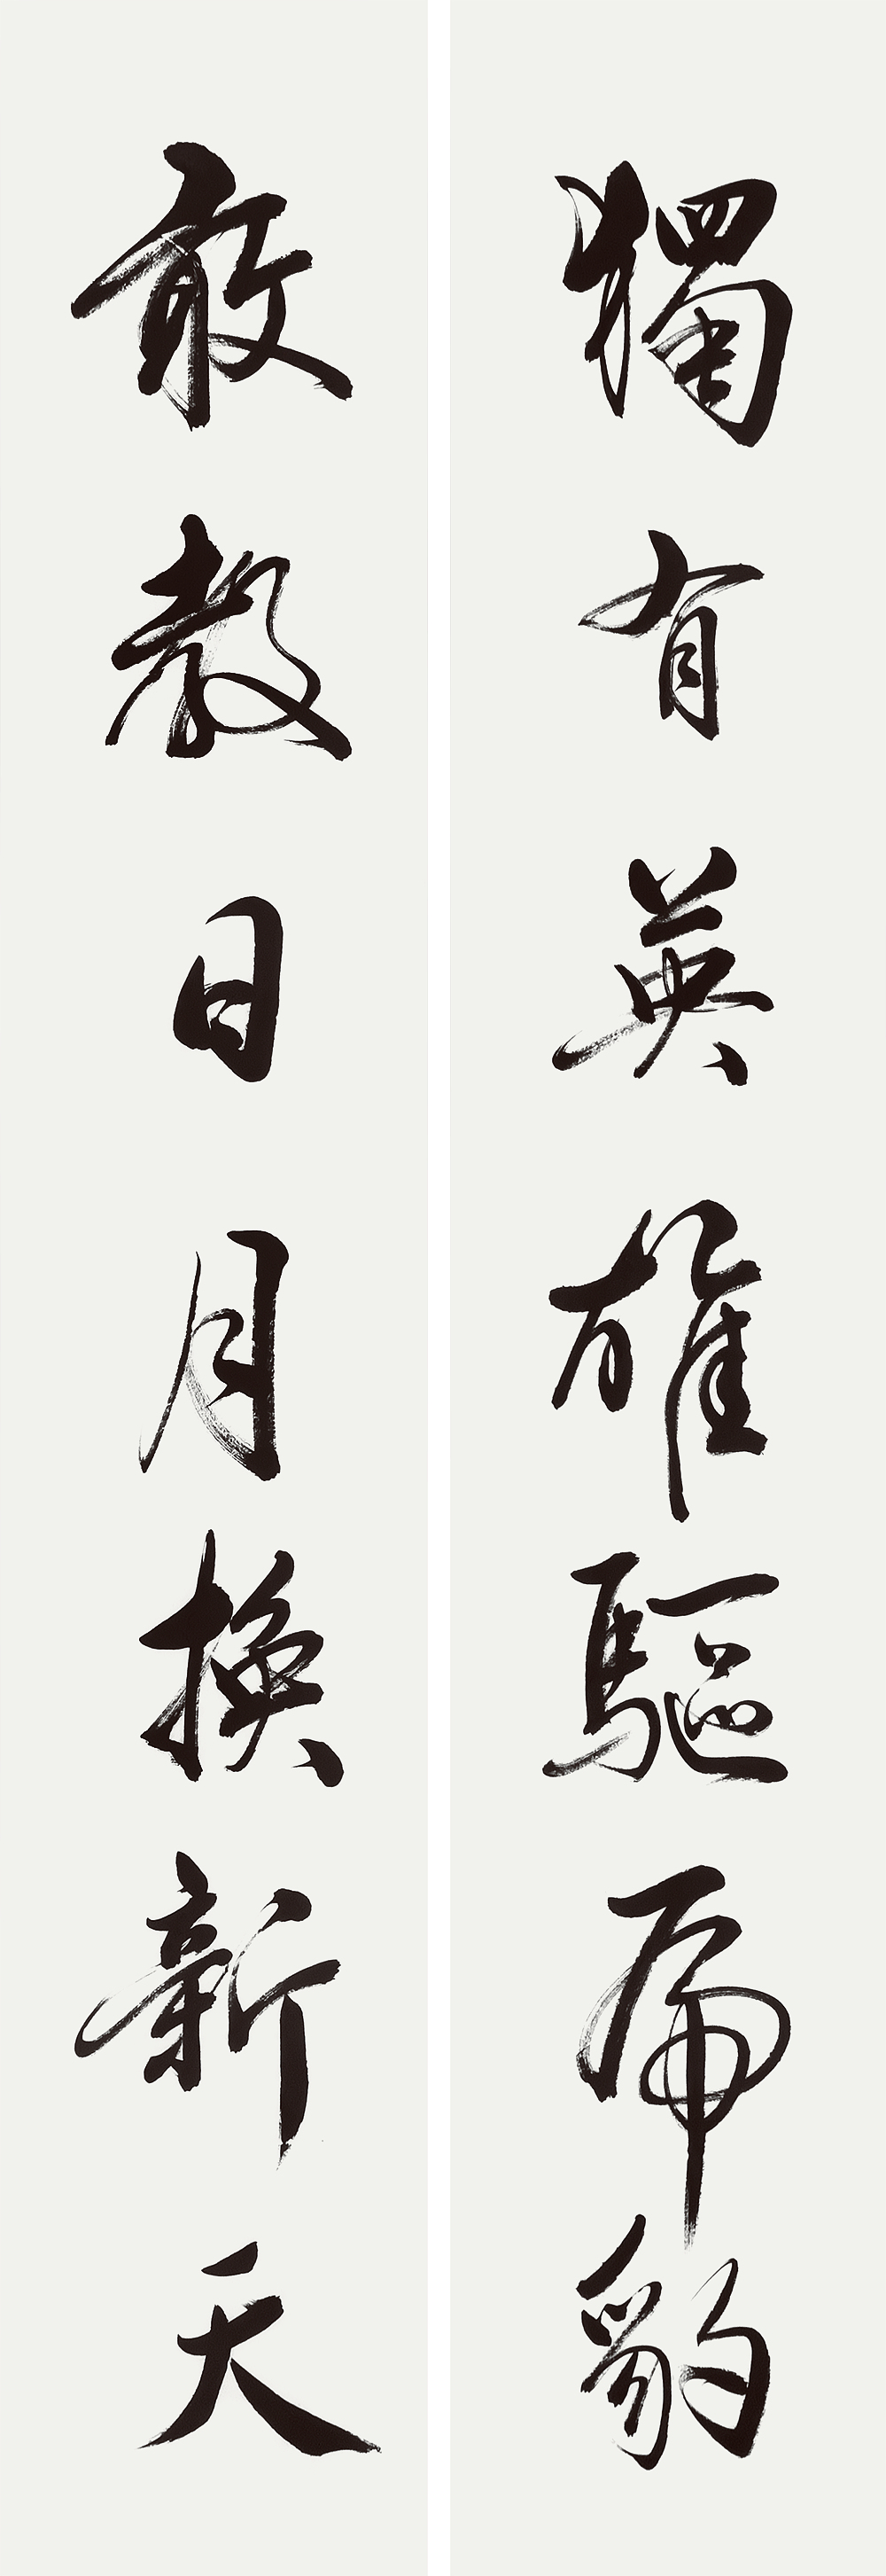 獨有英雄驅虎豹
敢教日月換新天